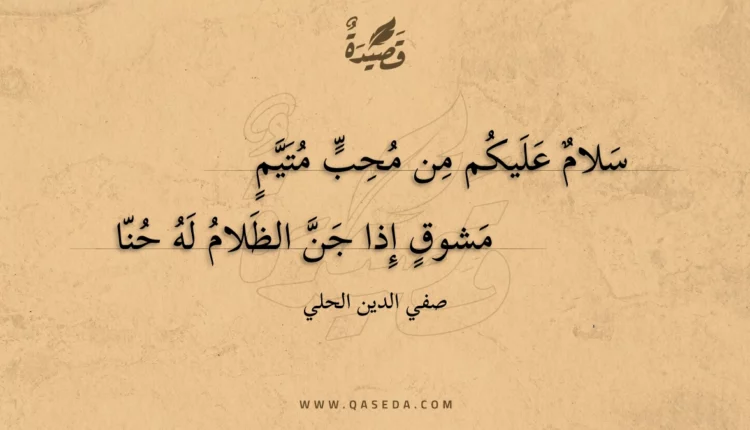 قَصِيدَةٌ
سَلامٌ عَلَيكُم مِن مُحِبٍّ مُتَيَّمٍ
مَشوقٍ إِذا جَنَّ الظَلامُ لَهُ حُنّا
صفي الدين الحلي
WWW.QASEDA.COM